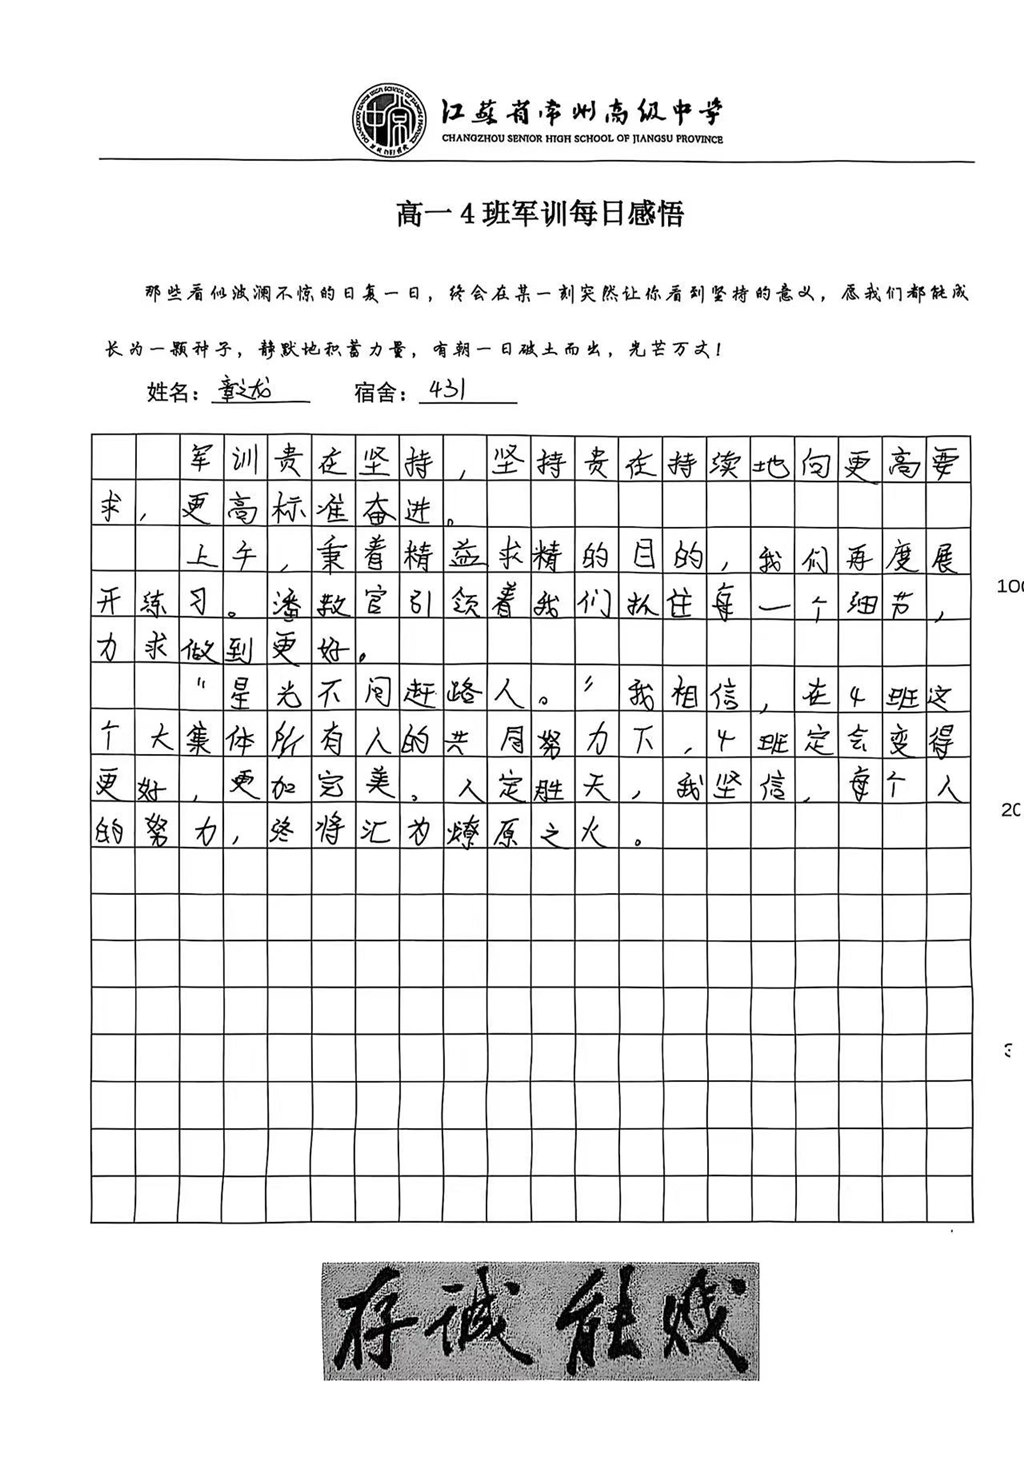 江苏省常州高级中学
CHANGZHOU SENIOR HIGH SCHOOL OF JIANGSU PROVINCE
高一4班军训每日感悟
那些看似波澜不惊的日复一日，终会在某一刻突然让你看到坚持的意义，愿我们都能成
长为一颗种子，静默地积蓄力量，有朝一日破土而出，光芒万丈！
姓名：章之龙 宿舍：431
军训贵在坚持，坚持贵在持续地向更高要
求，更高标准奋进。
上午，秉着精益求精的目的，我们再度展
开练习。潘教官引领着我们抓住每一个细节，
力求做到更好。
“星光不问赶路人。”我相信，在4班这
个大集体所有人的共同努力下，4班定会变得
更好，更加完美。人定胜天，我坚信，每个人
的努力，终将汇为燎原之火。
100
20
3
存诚能贱